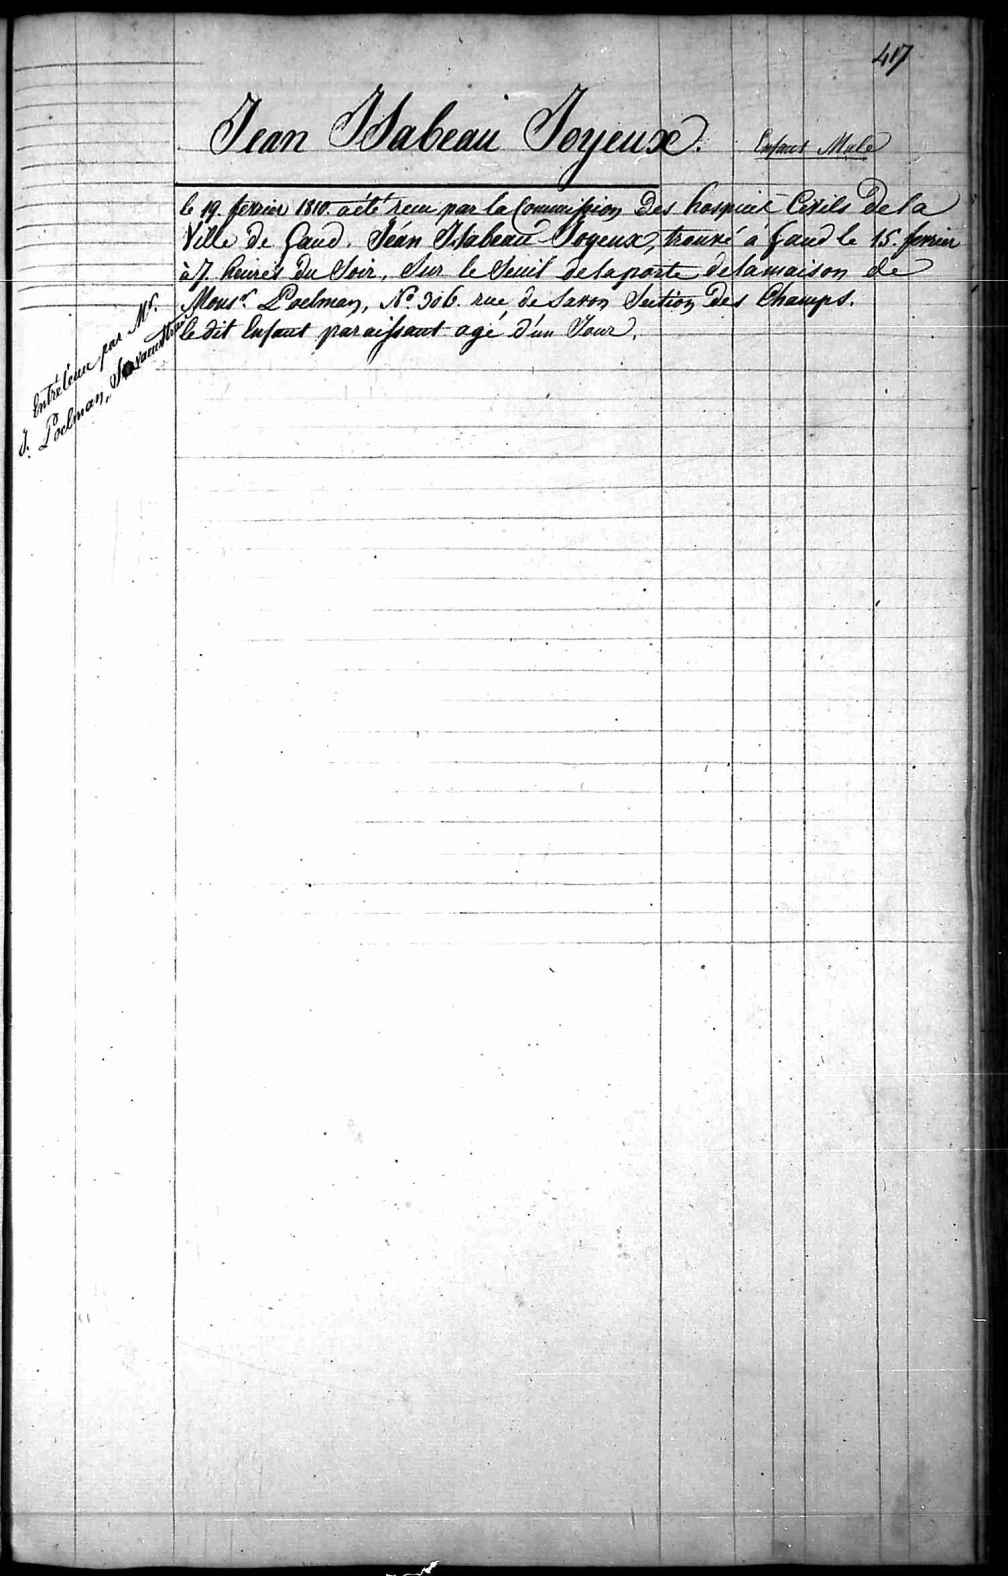 417
Jean Isabeau Joyeux. Enfant Male
le 19. fevrier 1810. a été recu par la Commission Des hospices Civils De la
Ville de Gand. Jean Isabeau Joyeux, trouvé à Gand le 15. fevrier
à 7. heures du Soir, Sur le Seuil de la porte de la maison de
Monsr. Poelman, No. 306. rue de Savon Section Des Champs.
le dit Enfant paraissant agé d'un Jour.
Entretenu par Mr.
J. Poelman,